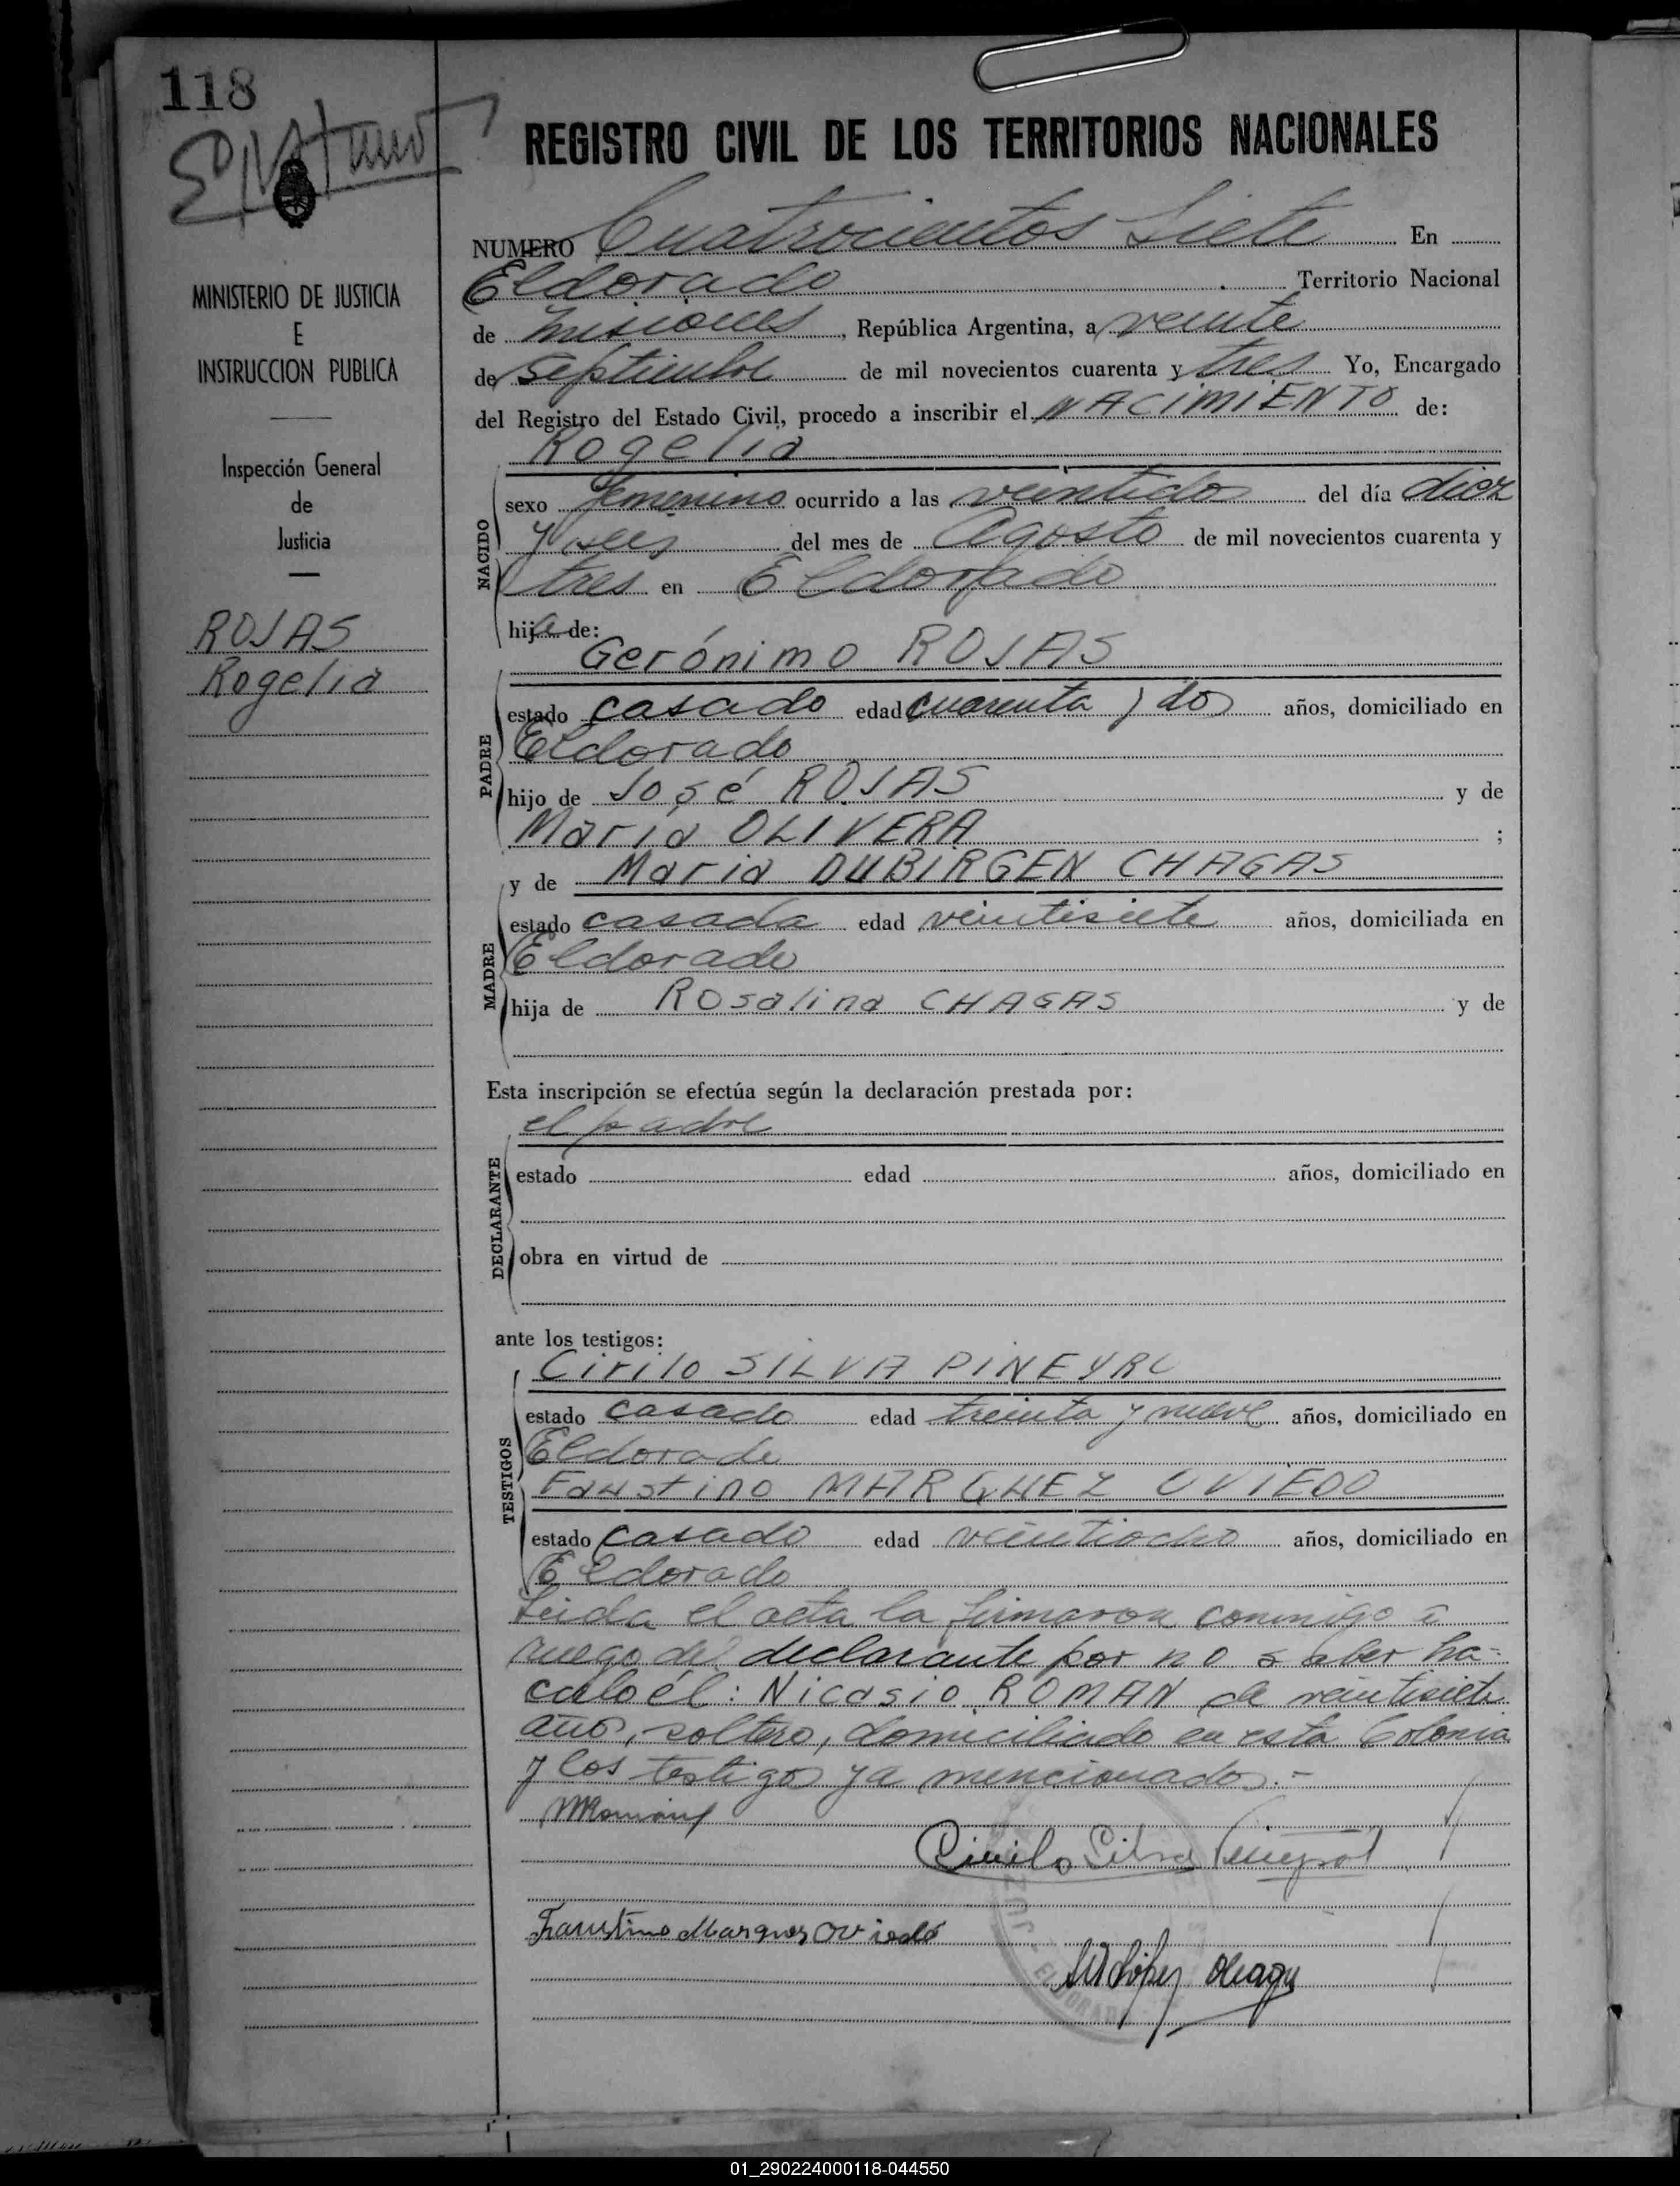 118
REGISTRO CIVIL DE LOS TERRITORIOS NACIONALES
MINISTERIO DE JUSTICIA
E
INSTRUCCION PUBLICA
Inspección General
de
Justicia
ROJAS
Rogelia
NUMERO Cuatrocientos Siete En
Eldorado Territorio Nacional
de Misiones, República Argentina, a veinte
de Septiembre de mil novecientos cuarenta y tres Yo, Encargado
del Registro del Estado Civil, procedo a inscribir el NACIMIENTO de:
Rogelia
NACIDO
sexo femenino ocurrido a las veintidos del día diez
y seis del mes de Agosto de mil novecientos cuarenta y
tres en Eldorado
hija de:
Gerónimo ROJAS
PADRE
estado casado edad cuarenta y dos años, domiciliado en
Eldorado
hijo de José ROJAS y de
María OLIVERA ;
y de Maria DUBIRGEN CHAGAS
MADRE
estado casada edad veintisiete años, domiciliada en
Eldorado
hija de Rosalina CHAGAS y de
Esta inscripción se efectúa según la declaración prestada por:
el padre
DECLARANTE
estado edad años, domiciliado en
obra en virtud de
ante los testigos:
Cirilo SILVA PINEYRO
TESTIGOS
estado casado edad treinta y nueve años, domiciliado en
Eldorado
Faustino MARQUEZ OVIEDO
estado casado edad veintiocho años, domiciliado en
Eldorado
Leida el acta la firmaron conmigo a
ruego del declarante por no saber ha-
cerlo él: Nicasio ROMAN de veintisiete
años, soltero, domiciliado en esta Colonia
y los testigos ya mencionados.-
NRoman
Cirilo Silva Pineyro
Faustino Marquez Oviedo
ELDORADO
01_290224000118-044550